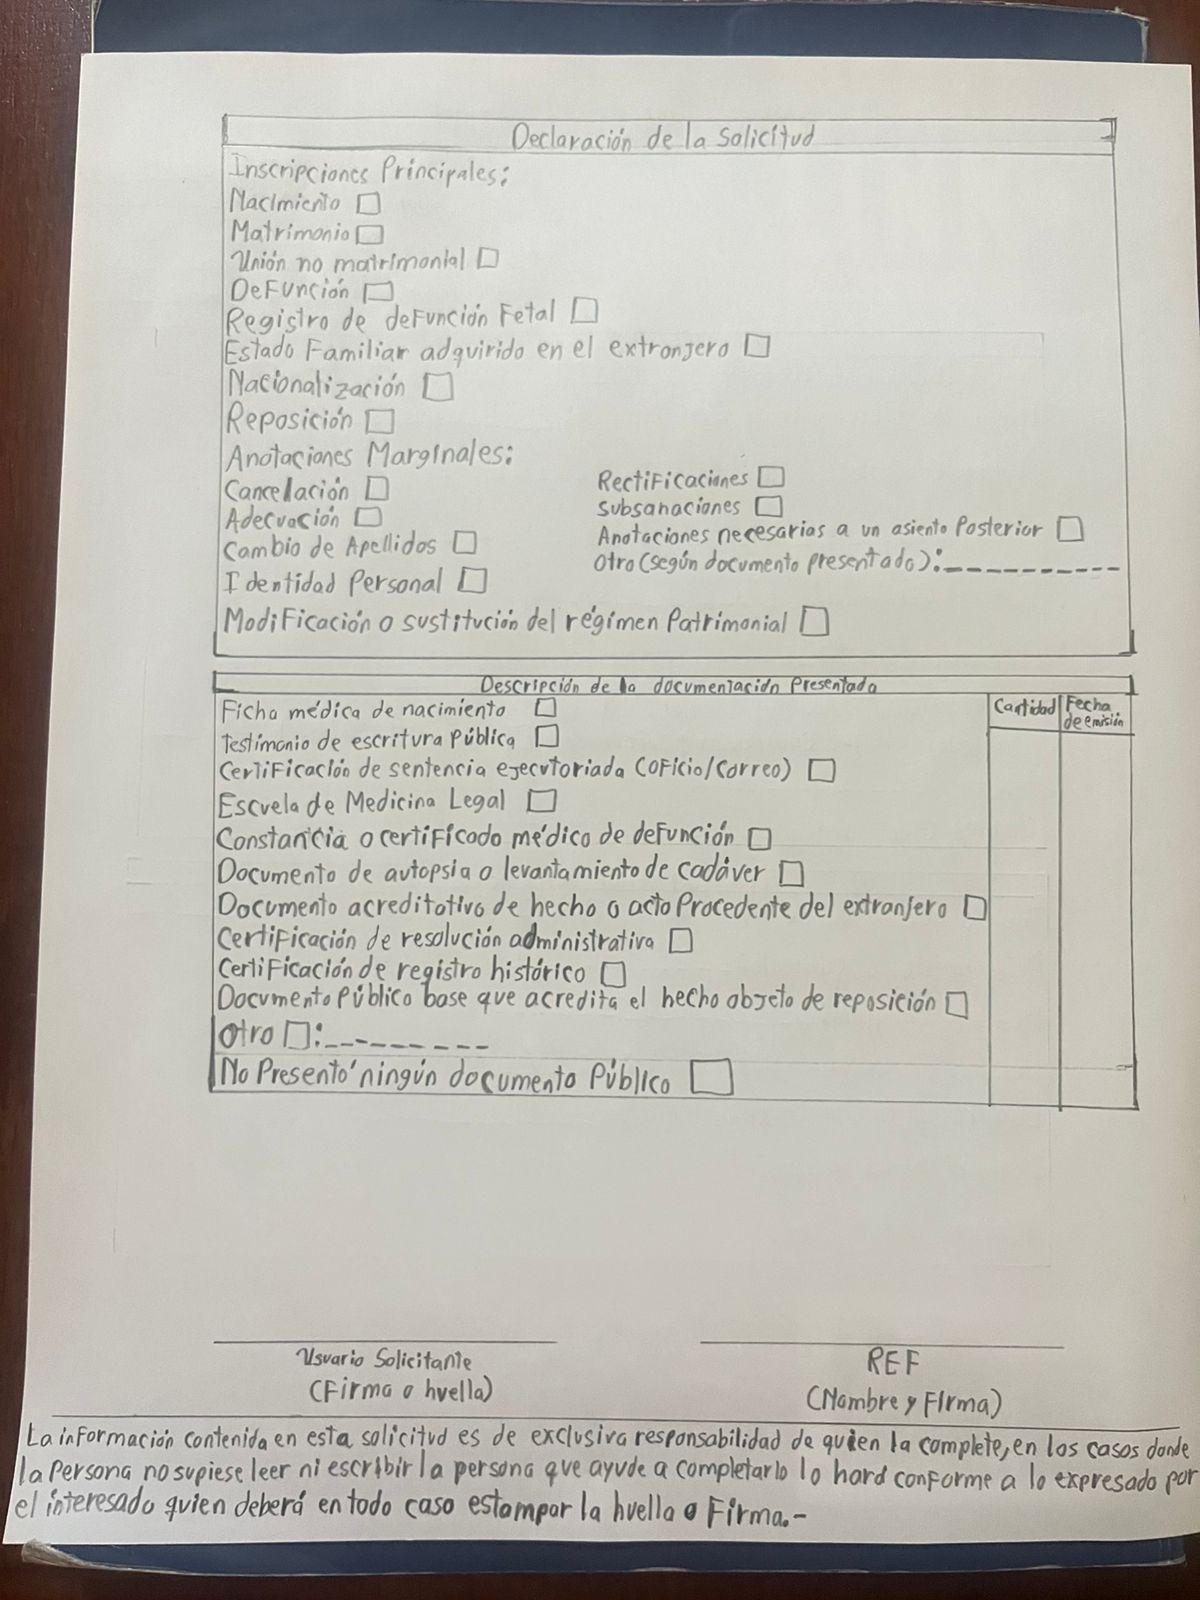 Declaración de la Solicitud
Inscripciones Principales:
Nacimiento
Matrimonio
Unión no matrimonial
Defunción
Registro de defunción Fetal
Estado Familiar adquirido en el extranjero
Nacionalización
Reposición
Anotaciones Marginales:
Cancelación
Adecuación
Cambio de Apellidos
Identidad Personal
Rectificaciones
Subsanaciones
Anotaciones necesarias a un asiento Posterior
Otro (según documento presentado):__________
Modificación o sustitución del régimen Patrimonial
Descripción de la documentación Presentada
Cantidad
Fecha
de emisión
Ficha médica de nacimiento
Testimonio de escritura Pública
Certificación de sentencia ejecutoriada (Oficio/Correo)
Escuela de Medicina Legal
Constancia o certificado médico de defunción
Documento de autopsia o levantamiento de cadáver
Documento acreditativo de hecho o acto Procedente del extranjero
Certificación de resolución administrativa
Certificación de registro histórico
Documento Público base que acredita el hecho objeto de reposición
Otro :_________
No Presentó ningún documento Público
Usuario Solicitante
(Firma o huella)
REF
(Nombre y Firma)
La información contenida en esta solicitud es de exclusiva responsabilidad de quien la complete, en los casos donde
la Persona no supiese leer ni escribir la persona que ayude a completarlo lo hará conforme a lo expresado por
el interesado quien deberá en todo caso estampar la huella o Firma.-